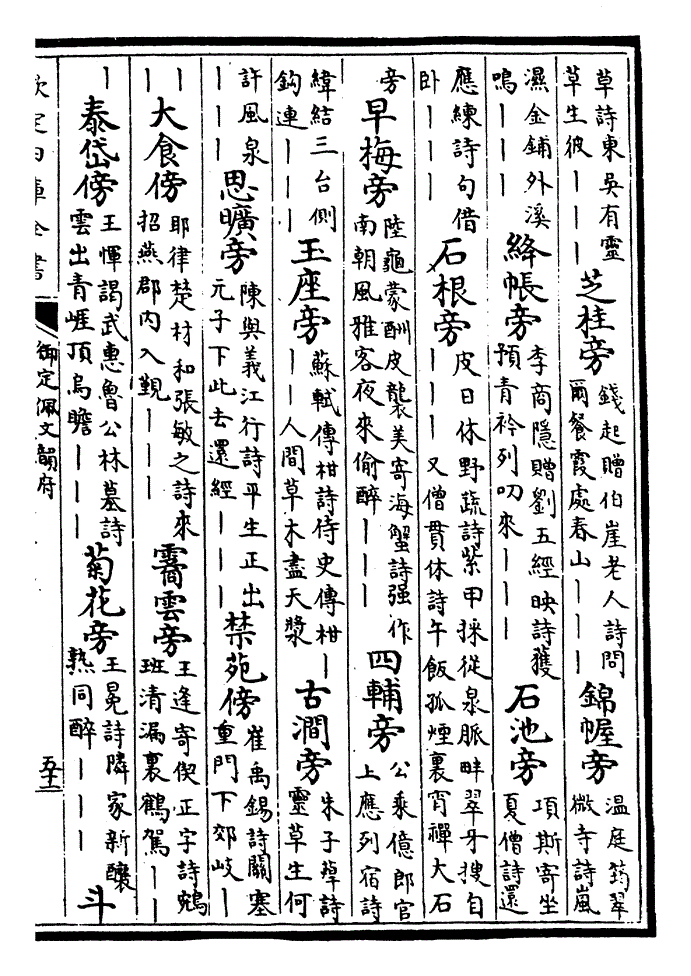 草詩東吳有靈草生彼｜｜｜芝桂旁錢起贈伯崖老人詩問爾餐霞處春山｜｜｜錦幄旁溫庭筠翠微寺詩嵐
濕金鋪外溪鳴｜｜｜絳帳旁李商隱贈劉五經映詩獲預青衿列叨來｜｜｜石池旁項斯寄坐夏僧詩還
應練詩句借卧｜｜｜石根旁皮日休野蔬詩紫甲採從泉脈畔翠牙搜自｜｜｜又僧貫休詩午飯孤煙裏宵禪大石
旁早梅旁陸龜蒙酬皮襲美寄海蟹詩强作南朝風雅客夜來偷醉｜｜｜四輔旁公乘億郎官上應列宿詩
緯結三台側鈎連｜｜｜玉座旁蘇軾傳柑詩侍史傳柑｜｜｜人間草木盡天漿古澗旁朱子詩靈草生何
許風泉｜｜｜思曠旁陳與義江行詩平生正出元子下此去還經｜｜｜禁苑傍崔禹錫詩關塞重門下郊岐｜
｜｜大食傍耶律楚材和張敏之詩來招燕郡内入覲｜｜｜霱雲旁王逢寄偰正字詩鵷班清漏裏鶴駕｜｜
｜泰岱傍王惲謁武惠魯公林墓詩雲出青崕頂烏瞻｜｜｜菊花旁王冕詩隣家新釀熟同醉｜｜｜斗
欽定四庫全書
御定佩文韻府